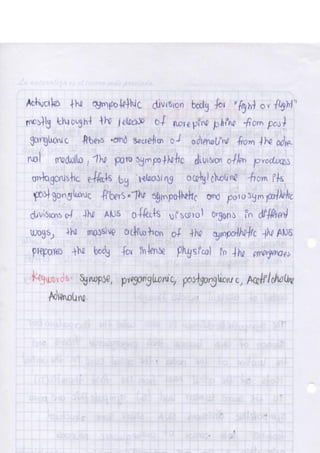 La naturaleza es el tesoro más preciado
Activates the sympothetic division body for "fight or flight"
mostly throught the release of norepine phine from post
ganglionic fibers and secretion of adrenaline from the adre
nal medulla, The para sympathetic division often produces
antagonistic effects by releasing acetylcholine from its
postganglionic fibers. The sympathetic and parasympathetic
divisions of the ANS affects visceral organs in different
ways, the massive activation of the sympathetic the ANS
prepares the body for intense physical in the emergences
Keywords: Synapse, preganglionic, postganglionic, Acetilcholine
Adrenaline.